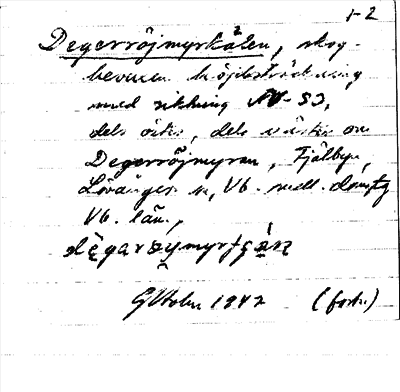 1-2
Degerröjmyrkälen, skog-
bevuxen höjdsträckning
med riktning NV-SO,
dels öster, dels väster om
Degerröjmyran, Fjälbyn,
Lövångers sn, Vb. medl. domstg
Vb. län,
1942 (forts.)